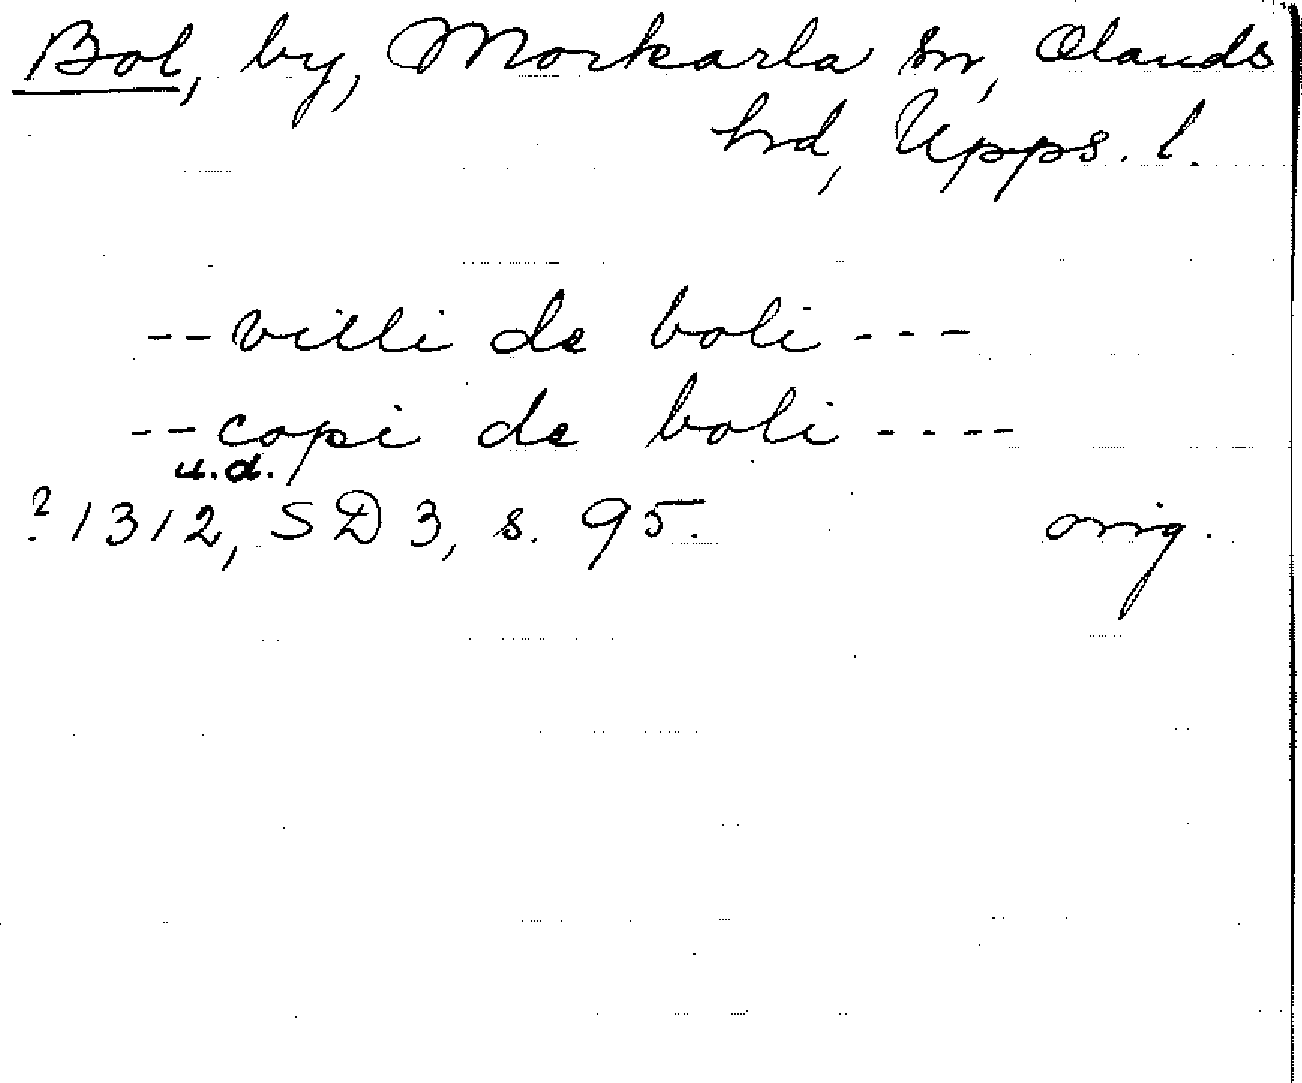 Bol, by, Morkarla sn, Olands
hrd, Upps. l.
-- villi de boli ---
-- copi de boli ----
u.d.
? 1312, SD 3, s. 95. orig.